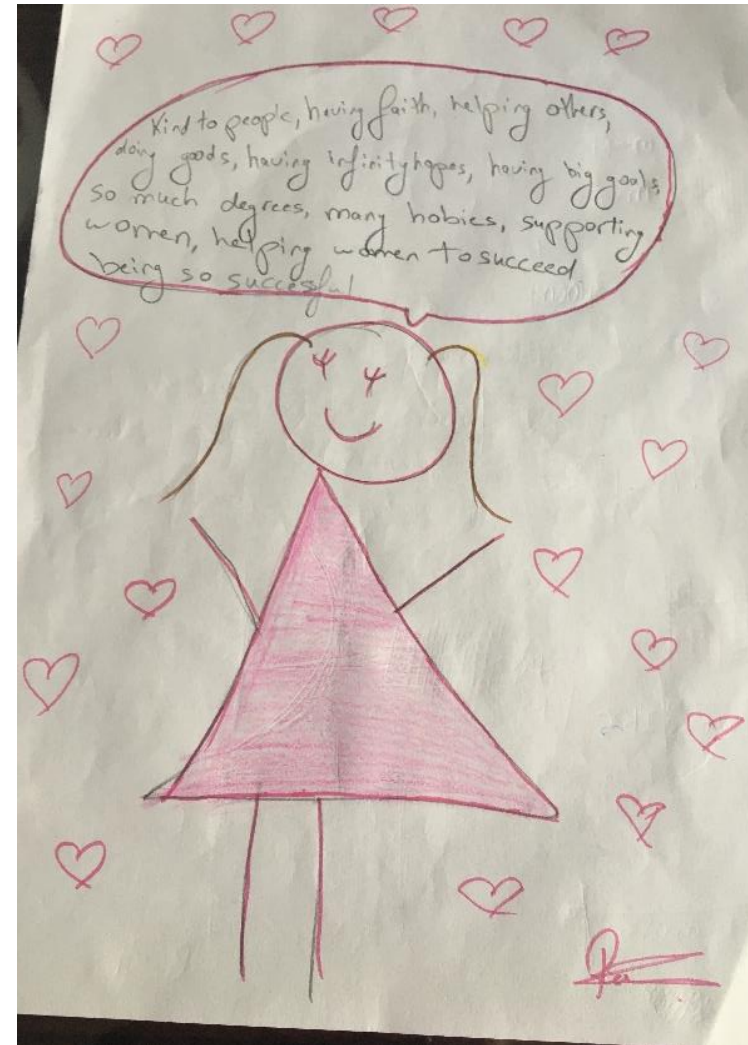 Kind to people, having faith, helping others,
doing goods, having infinity hopes, having big goals,
so much degrees, many hobies, supporting
women, helping women to succeed
being so succesful